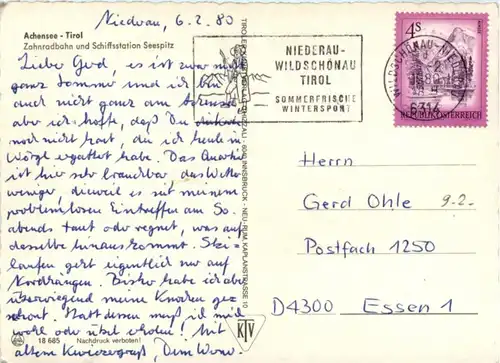 Niederau, 6.2.80
Achensee - Tirol
Zahnradbahn und Schiffsstation Seespitz
Lieber Gerd, es ist zwar nicht
ganz Sommer und ich bin
auch nicht ganz am Achensee
aber ich hoffe, daß Du die Karte
noch nicht hast, die ich heute in
Wörgl ergattert habe. Das Quartier
ist hier sehr brauchbar, das Wetter
weniger, dieweil es seit meinem
problemlosen Eintreffen am So.
abends taut oder regnet, was auf
dasselbe hinauskommt. Ski-
laufen geht eigentlich nur auf
Nordhängen. Bisher habe ich aber
überwiegend meine Knochen ge-
schont. Stattdessen muß ich mich
wohl oder übel erholen! Mit
altem
18 685 Nachdruck verboten!
NEU-RUM, KAPLANSTRASSE 10
KTV
NIEDERAU-
WILDSCHÖNAU
TIROL
SOMMERFRISCHE
WINTERSPORT
WILDSCHÖNAU-NIEDERAU
6314
4S
REPUBLIK ÖSTERREICH
Herrn
Gerd Ohle 9.2.
Postfach 1250
D4300 Essen 1